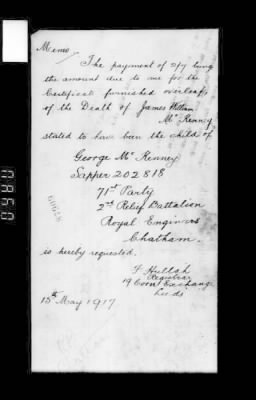 Memo/
The payment of 2/7 being
the amount due to me for the
Certificate furnished overleaf,
of the Death of James William
McKenney
stated to have been the child of
George McKenney
Sapper 202818
71st Party
2nd Relief Battalion
Royal Engineers
Chatham.
is hereby requested.
F Hullah
Registrar
19 Corn Exchange
Leeds
15th May 1917